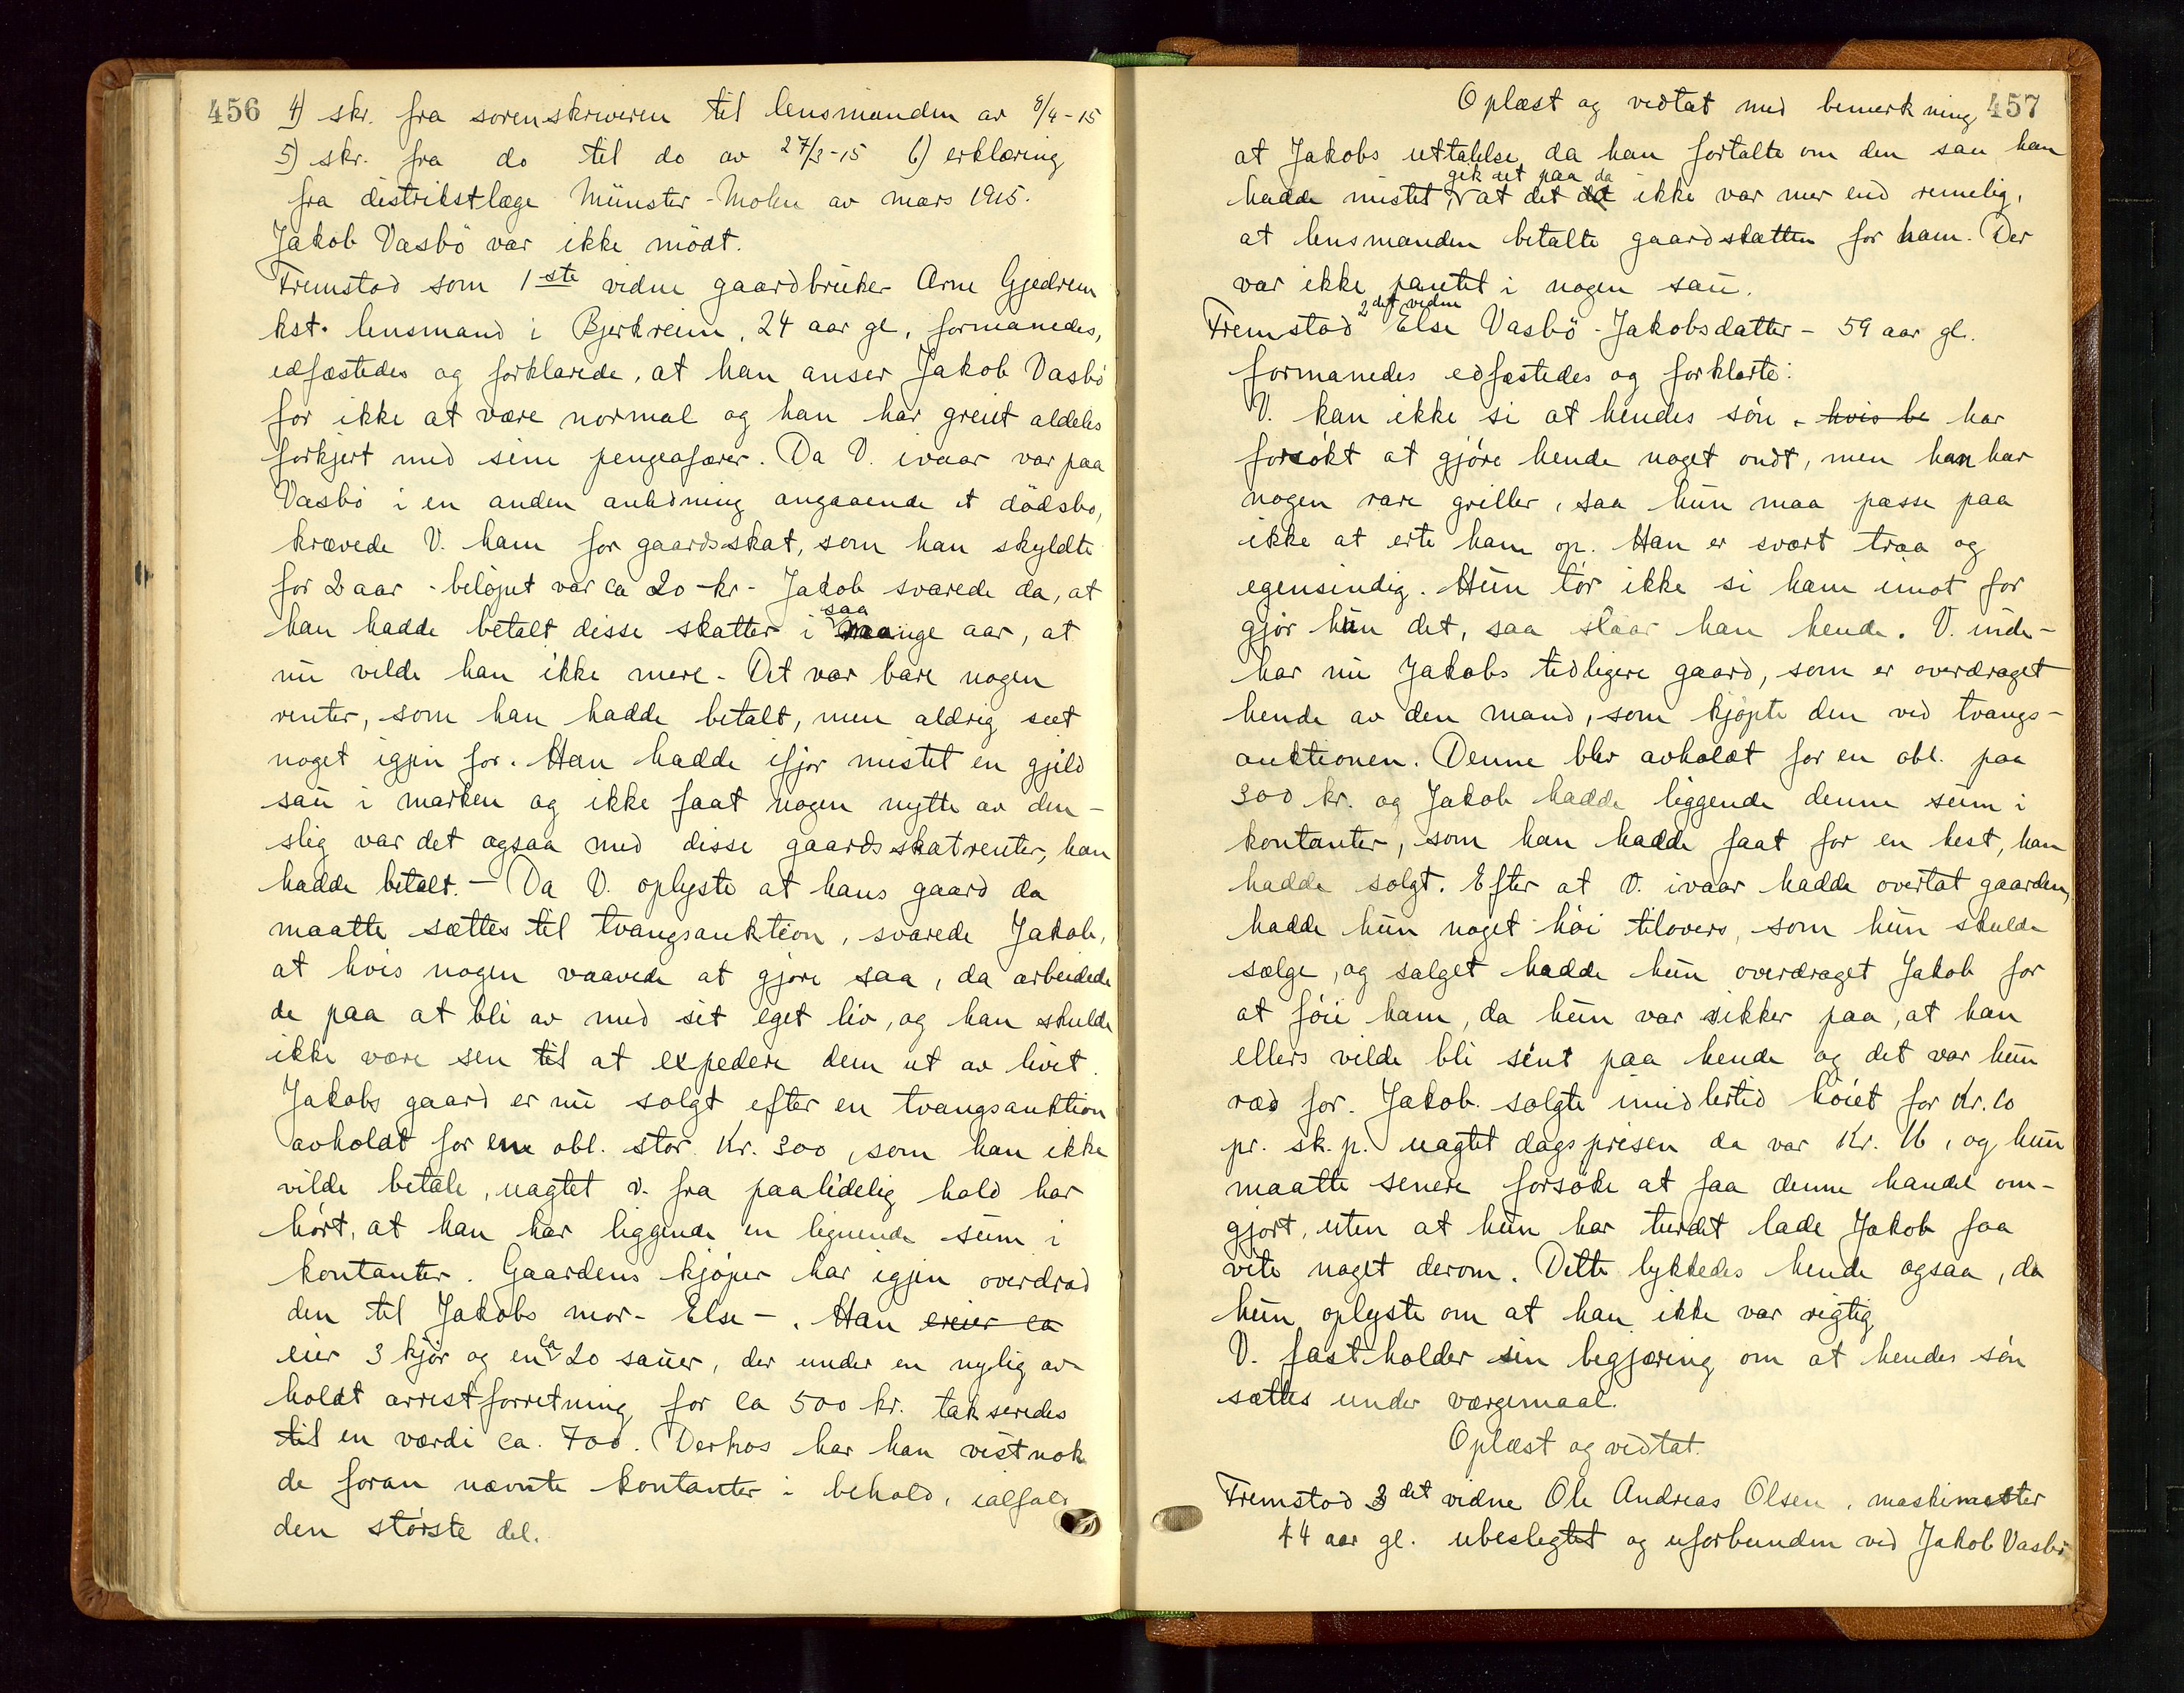 456
4) skr. fra sorenskriveren til lensmanden av 8/4-15
5) skr. fra do til do av 27/3-15 6) erklæring
fra distriktslæge Münster-Mohn av mars 1915.
Jakob Vasbö var ikke mödt.
Fremstod som 1ste vidne gaardbruker Arne Gjedrem
kst. lensmand i Bjerkreim, 24 aar gl, formanedes,
edfæstedes og forklarede, at han anser Jakob Vasbö
for ikke at være normal og han har greiet aldeles
forkjert med sine pengeafærer. Da V. ivaar var paa
Vasbö i en anden anledning angaaende et dödsbo,
krævede V. ham for gaardsskat, som han skyldte
for 2 aar - belöpet var ca 20 kr - Jakob svarede da, at
han hadde betalt disse skatter i saa mange aar, at
nu vilde han ikke mere - Det var bare nogen
renter, som han hadde betalt, men aldrig seet
noget igjen for. Han hadde ifjor mistet en gjeld
sau i marken og ikke faat nogen nytte av den -
slig var det ogsaa med disse gaardsskatrenter, han
hadde betalt. - Da V. oplyste at hans gaard da
maatte sættes til tvangsauktion, svarede Jakob,
at hvis nogen vaavede at gjöre saa, da arbeidede
de paa at bli av med sit eget liv, og han skulde
ikke være sen til at expedere dem ut av livet.
Jakobs gaard er nu solgt efter en tvangsauktion
avholdt for en obl. stor Kr. 300, som han ikke
vilde betale, uagtet v. fra paalidelig hold har
hört, at han har liggende en lignende sum i
kontanter. Gaardens kjöper har igjen overdrad
den til Jakobs mor - Else -. Han ereier ca
eier 3 kjör og en ca 20 sauer, der under en nylig av
holdt arrestforretning for ca 500 kr. takseredes
til en værdi ca. 700. Derhos har han vistnok
de foran nævnte kontanter i behold, ialfald
den störste del.
457
Oplæst og vedtat med bemerkning
at Jakobs uttalelse da han fortalte om den sau han
gik ut paa da
hadde mistet, at det det ikke var mer end rimelig,
at lensmanden betalte gaardskatten for ham. Der
var ikke pantet i nogen sau.
2det vidne
Fremstod Else Vasbö - Jakobsdatter - 59 aar gl.
formanedes edfæstedes og forklarte:
V. kan ikke si at hendes sön, hvis be har
forsökt at gjöre hende noget ondt, men han har
nogen rare griller, saa hun maa passe paa
ikke at erte ham op. Han er svært traa og
egensindig. Hun tör ikke si ham imot for
gjör hun det, saa slaar han hende. V. inde-
har nu Jakobs tidligere gaard, som er overdraget
hende av den mand, som kjöpte den ved tvangs-
auktionen. Denne blev avholdt for en obl. paa
300 kr. og Jakob hadde liggende denne sum i
kontanter, som han hadde faat for en hest, han
hadde solgt. Efter at V. ivaar hadde overtat gaarden,
hadde hun noget höi tilovers, som hun skulde
sælge, og salget hadde hun overdraget Jakob for
at föie ham, da hun var sikker paa, at han
ellers vilde bli sint paa hende og det var hun
ræd for. Jakob solgte imidlertid höiet for Kr. 10
pr. sk.p. uagtet dagsprisen da var Kr. 16, og hun
maatte senere forsöke at faa denne handel om-
gjort, uten at hun har turdet lade Jakob faa
vite noget derom. Dette lykkedes hende ogsaa, da
hun oplyste om at han ikke var rigtig
V. fastholder sin begjæring om at hendes sön
sættes under værgemaal.
Oplæst og vedtat.
Fremstod 3 det vidne Ole Andreas Olsen, maskinester
44 aar gl. ubeslegtet og uforbunden ved Jakob Vasbö